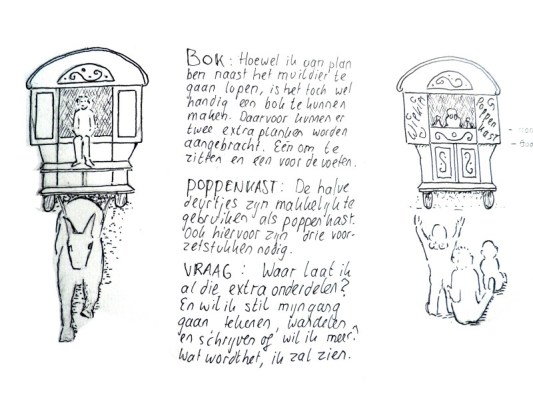 BOK: Hoewel ik van plan
ben naast het muildier te
gaan lopen, is het toch wel
handig een bok te kunnen
maken. Daarvoor kunnen er
twee extra planken worden
aangebracht. Eén om te
zitten en een voor de voeten.
POPPENKAST: De halve
deurtjes zijn makkelijk te
gebruiken als poppenkast.
Ook hiervoor zijn drie voor-
zetstukken nodig.
VRAAG: Waar laat ik
al die extra onderdelen?
En wil ik stil mijn gang
gaan tekenen, wandelen
en schrijven of wil ik meer?
Wat wordt het, ik zal zien.
Poppen
kast